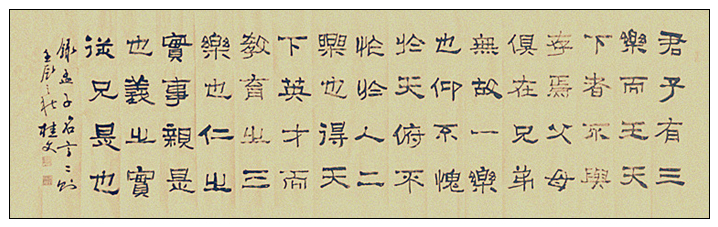 君子有三
樂而王天
下者不與
存焉父母
俱在兄弟
無故一樂
也仰不愧
於天俯不
怍於人二
樂也得天
下英才而
教育之三
樂也仁之
實事親是
也義之實
從兄是也
錄孟子名言二則
壬辰之秋桂文